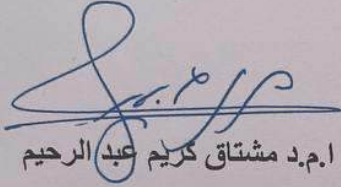 ا.م.د مشتاق كريم عبد الرحيم